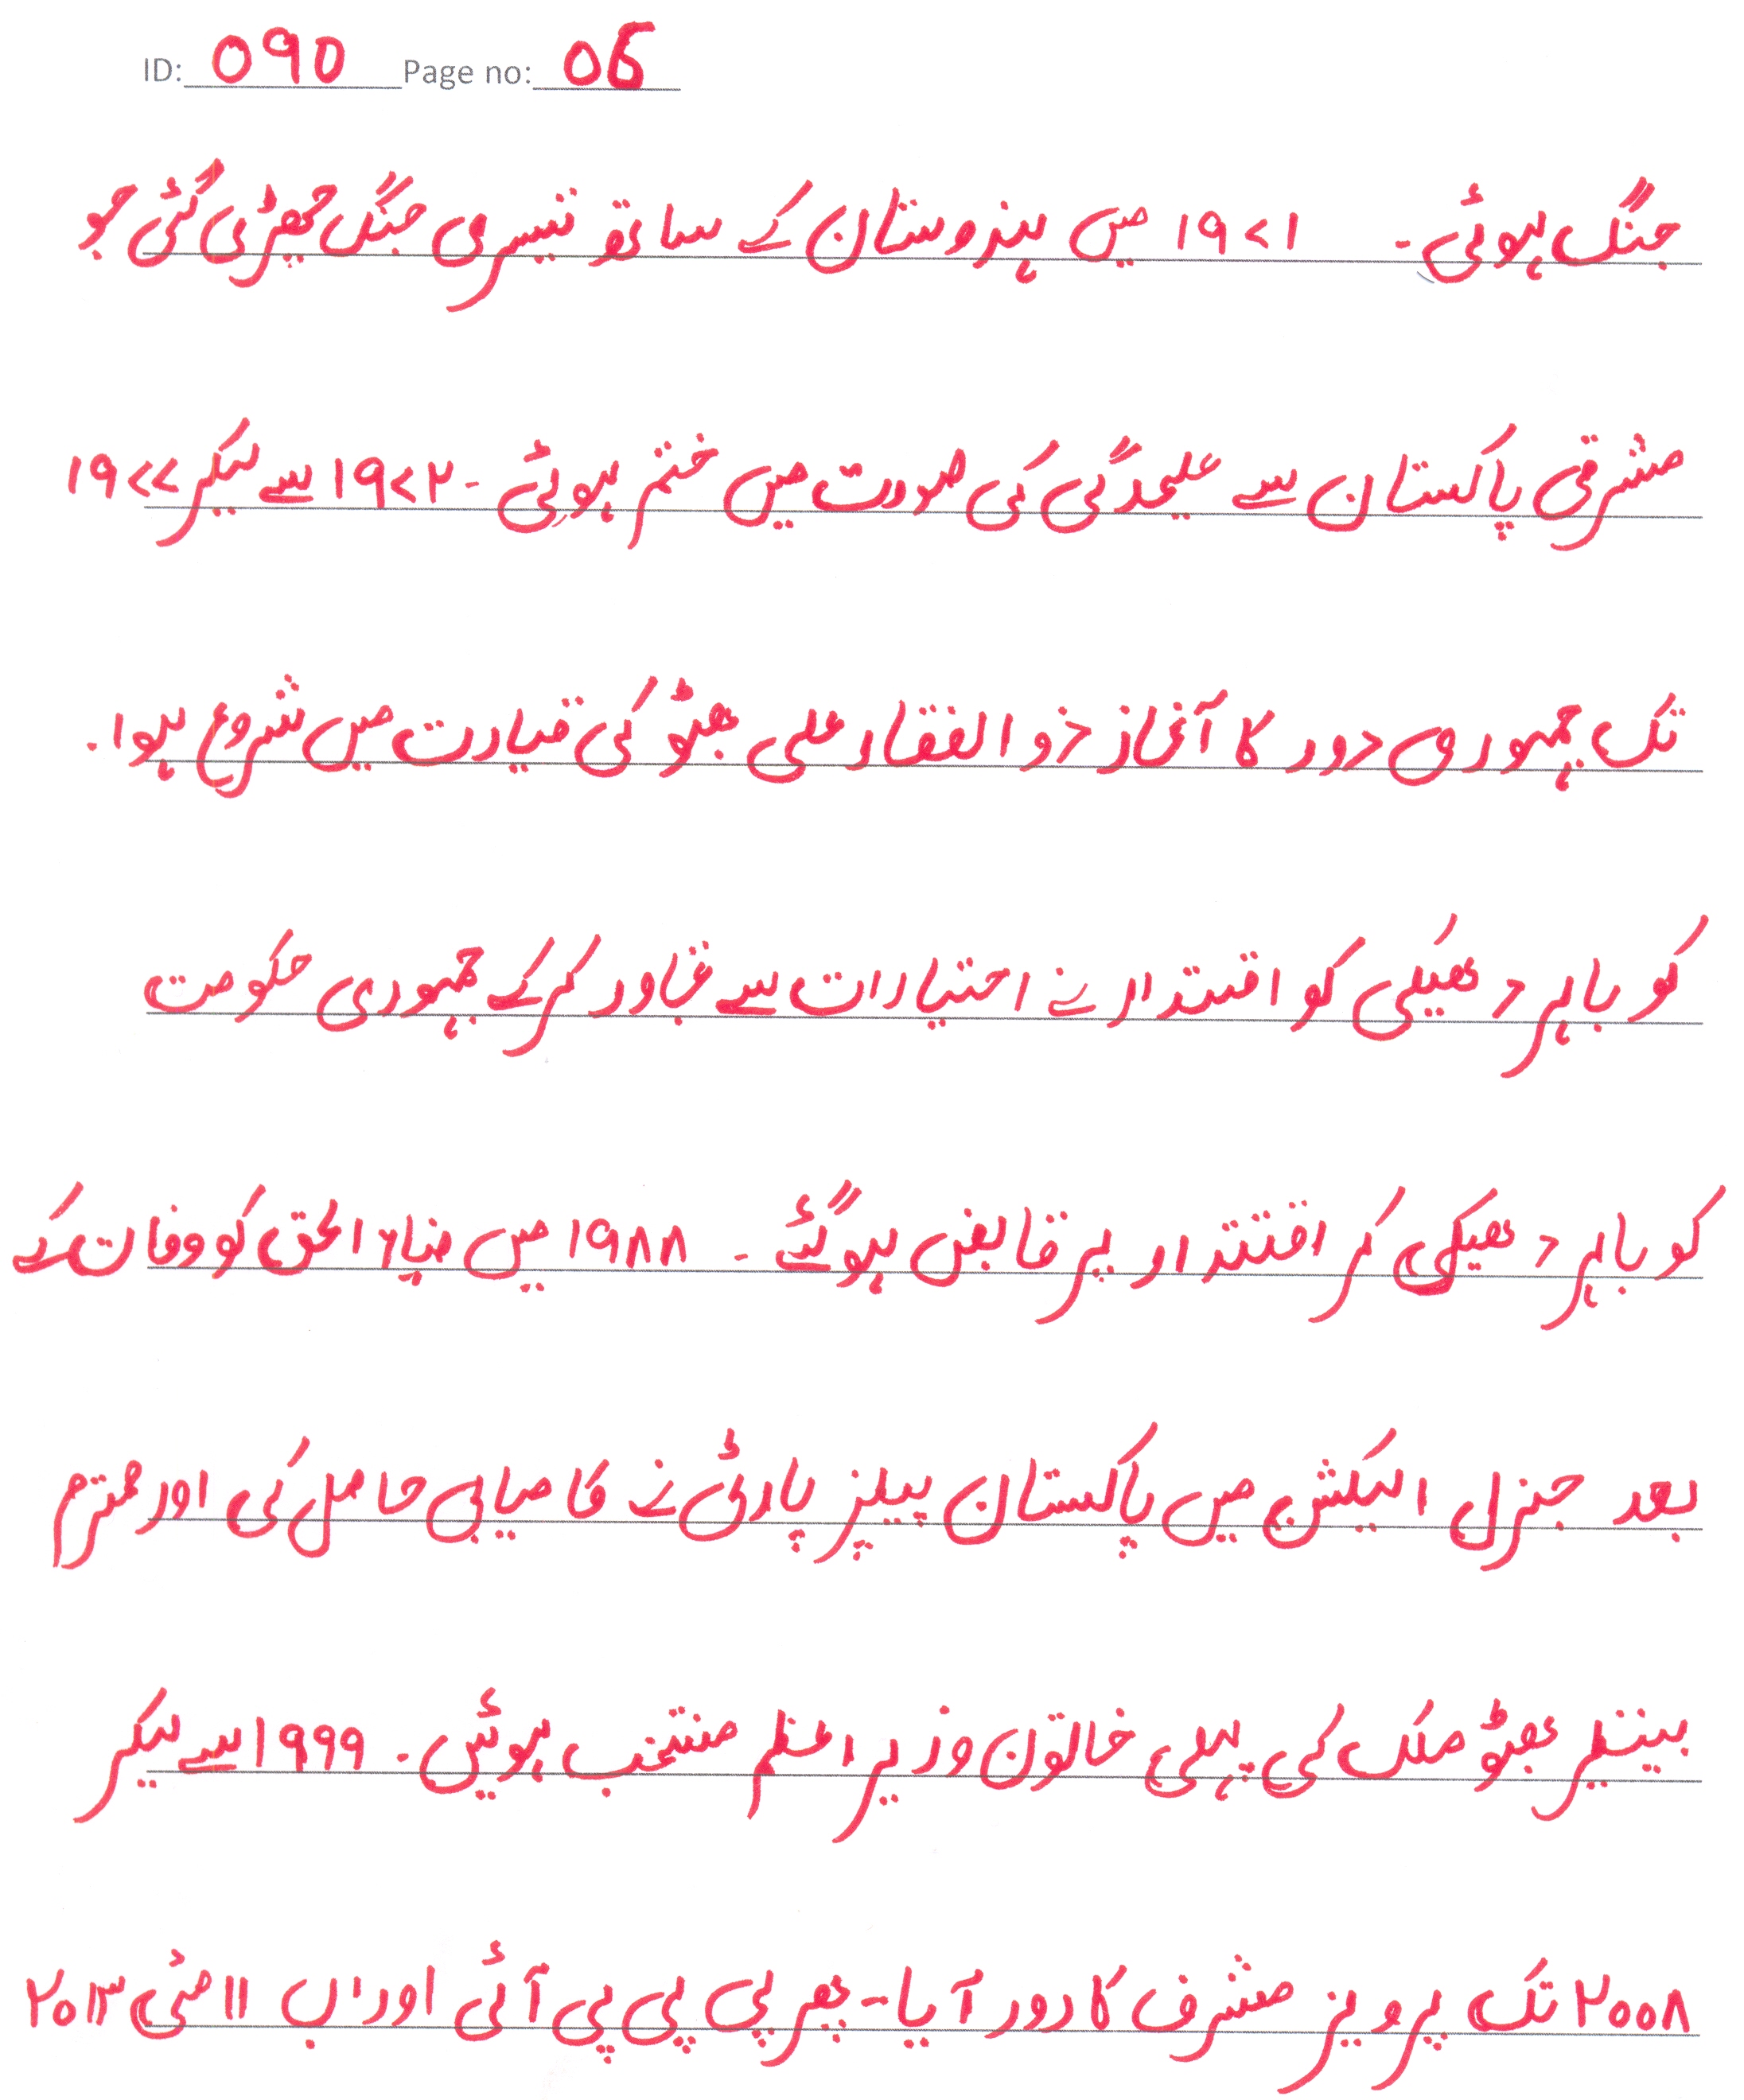 ID: 090 Page no: 06
جنگ ہوئی۔ ۱۹۷۱ میں ہندوستان کے ساتھ تیسری جنگ چھڑی گئی جو
مشرقی پاکستان سے علیحدگی کی صورت میں ختم ہوئی۔ ۱۹۷۲ سے لیکر ۱۹۷۷
تک جمہوری دور کا آغاز ذوالفقار علی بھٹو کی قیادت میں شروع ہوا۔
کو باہر دھکیلی کو اقتدار نے اختیارات سے تجاوز کرکے جمہوری حکومت
کو باہر دھکیلی کر اقتتدار پر قابض ہوگئے۔ ۱۹۸۸ میں ضیاء الحق کو وفات کے
بعد جنرل الیکشن میں پاکستان پیپلز پارٹی نے کامیابی حاصل کی اور محترم
بینظیر بھٹو ملک کی پہلی خاتون وزیر اعظم منتخب ہوئیں۔ ۱۹۹۹ سے لیکر
۲۰۰۸ تک پرویز مشرف کا دور آیا۔ پھر پی پی پی آئی اور اب ۱۱ مئی ۲۰۱۳